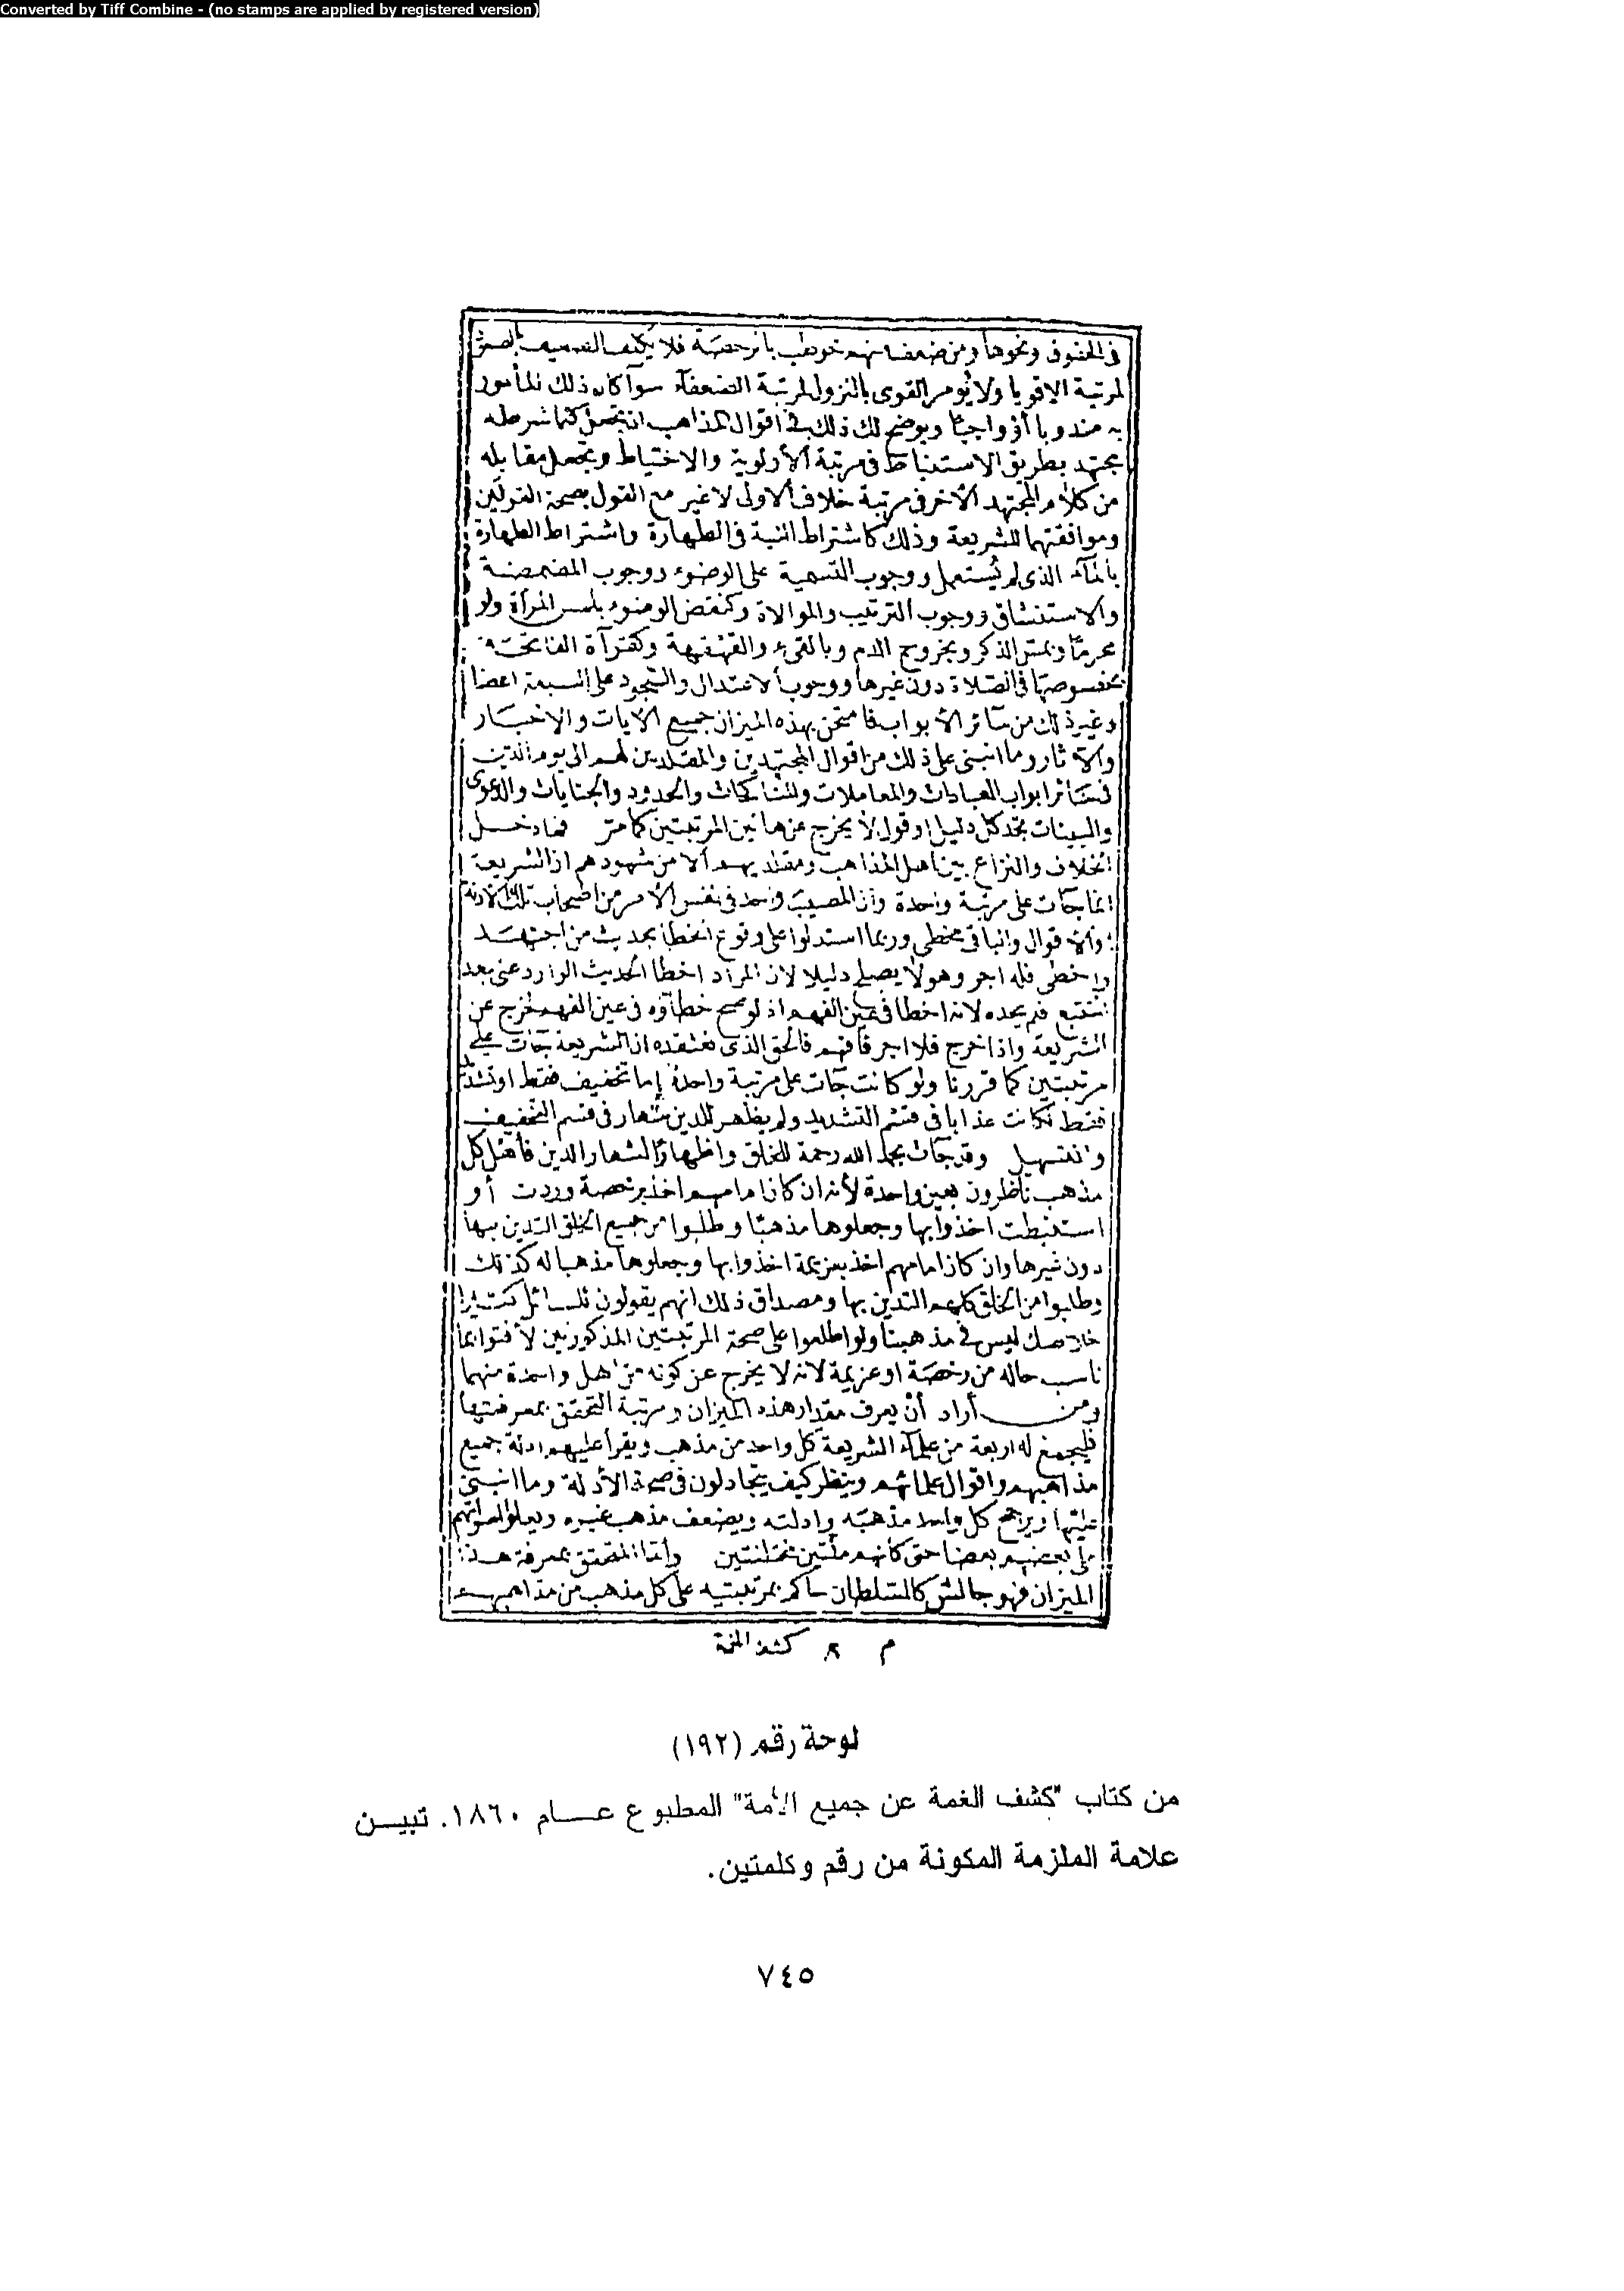 Converted by Tiff Combine - (no stamps are applied by registered version)
فى الحقوق ونحوها ومن ضعف منهم خوطب بالرخصة فلا يكلف الضعيف بالصعود
لمرتبة الاقويا ولا يومر القوى بالنزول لمرتبة الضعفآء سوآ كان ذلك المأمور
به مندوبا أو واجبا ويوضح لك ذلك فى اقوال المذاهب ان تجعل كلما شرطه
مجتهد بطريق الاستنباط فى مرتبة الأولوية والاحتياط وتجعل مقابله
من كلام المجتهد الآخر فى مرتبة خلاف الاولى لا غير مع القول بصحة القولين
وموافقتهما للشريعة وذلك كاشتراط النية فى الطهارة واشتراط الطهارة
بالمآء الذى لم يُستعمل ووجوب التسمية على الوضوء ووجوب المضمضة
والاستنشاق ووجوب الترتيب والموالاة وكنقض الوضوء بلمس المرأة ولو
محرمًا وبمس الذكر وبخروج الدم وبالقىء والقهقهة وكقرآة الفاتحة
بخصوصها فى الصلاة دون غيرها ووجوب الاعتدال والسجود على السبعة اعضا
وغير ذلك من سآئر الأبواب فامتحن بهذه الميزان جميع الايات والاخبار
والآثار وما انبنى على ذلك من اقوال المجتهدين والمقلدين لهم الى يوم الدين
فى سائر ابواب العبادات والمعاملات والمناكحات والحدود والجنايات والدعوى
والبينات تجد كل دليل او قول لا يخرج عن هاتين المرتبتين كما مر فما دخل
الخلاف والنزاع بين اهل المذاهب ومقلديهم الا من شهودهم ان الشريعة
انما جآت على مرتبة واحدة وان المصيب واحد فى نفس الأمر من اصحاب تلك الادلة
والأقوال والباقى مخطى وربما استدلوا على وقوع الخطا بحديث من اجتهد
واخطى فله اجر وهو لا يصلح دليلا لان المرآد اخطا الحديث الوارد عنى بعد
التتبع فلم يجده لا انه اخطا فى عين الفهم اذ لو صح خطآؤه فى عين الفهم لخرج عن
الشريعة واذا خرج فلا اجر فافهم فالحق الذى نعتقده ان الشريعة جآت على
مرتبتين كما قررنا ولو كانت جآت على مرتبة واحدة إما تخفيف فقط او تشديد
فقط لكانت عذابا فى قسم التشديد ولم يظهر للدين شعار فى قسم التخفيف
والتسهيل وقد جآت بحمد الله رحمة للخلق واظهارًا لشعار الدين فأهل كل
مذهب ناظرون بعين واحدة لأنه ان كان امامهم اخذ برخصة وردت أو
استنبطت اخذوا بها وجعلوها مذهبًا وطلبوا من جميع الخلق التدين بها
دون غيرها وان كان امامهم اخذ بعزيمة اخذوا بها وجعلوها مذهبا له كذلك
وطلبوا من الخلق كلهم التدين بها ومصداق ذلك انهم يقولون للسائل كثيرا
خلاصك ليس فى مذهبنا ولو اطلعوا على صحة المرتبتين المذكورتين لأفتوا بما
ناسب حاله من رخصة او عزيمة لانه لا يخرج عن كونه من اهل واحدة منهما
ومن أراد أن يعرف مقدار هذه الميزان ومرتبة التحقق بمعرفتها
فليجمع له اربعة من علمآء الشريعة كل واحد من مذهب ويقرأ عليهم ادلة جميع
مذاهبهم واقوال علمائهم وينظر كيف يتجادلون فى صحة الأدلة وما انبنى
عليها ويرجح كل واحد مذهبه وادلته ويضعف مذهب غيره ويعلوا اصواتهم
على بعضهم بعضا حتى كأنهم ملتين مختلفتين وأما المتحقق بمعرفة هذا
الميزان فهو جالس كالسلطان حاكم بمرتبتيه على كل مذهب من مذاهبهم
م ٢ كشف الغمة
لوحة رقم (١٩٢)
من كتاب "كشف الغمة عن جميع الأمة" المطبوع عـــام ١٨٦٠. تبيـــن
علامة الملزمة المكونة من رقم وكلمتين.
٧٤٥